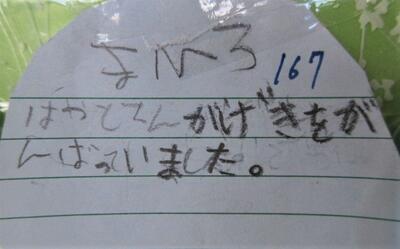 167
はやとくんがげきをが
んばっていました。